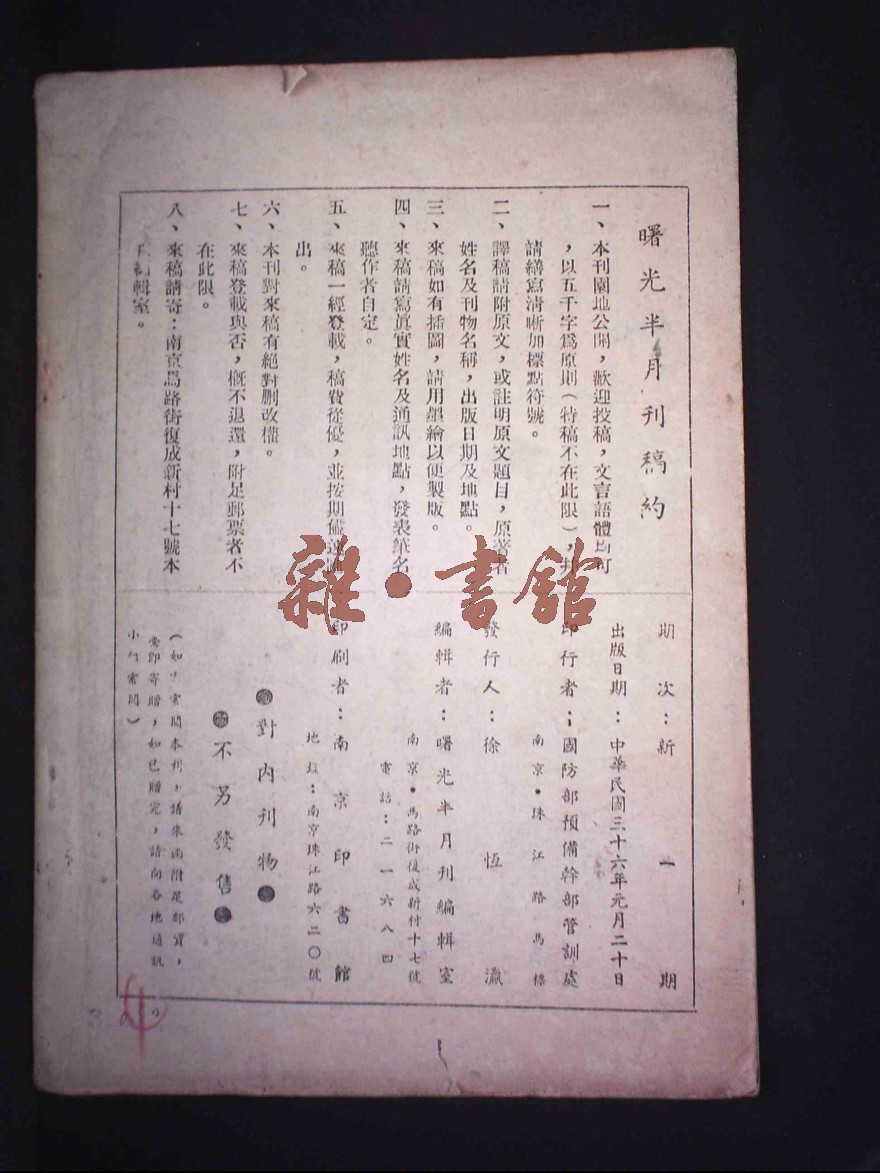 曙光半月刊稿約
一、本刊園地公開，歡迎投稿，文言語體均可
，以五千字爲原則（特稿不在此限），
請繕寫清晰加標點符號。
二、譯稿請附原文，或註明原文題目，原著者
姓名及刊物名稱，出版日期及地點。
三、來稿如有插圖，請用墨繪以便製版。
四、來稿請寫眞實姓名及通訊地點，發表筆名
聽作者自定。
五、來稿一經登載，稿費從優，並按期
出。
六、本刊對來稿有絕對刪改權。
七、來稿登載與否，槪不退還，附足郵票者不
在此限。
八、來稿請寄：南京馬路街復成新村十七號本
輯室。
期次：新一期
出版日期：中華民國三十六年元月二十日
印行者：國防部預備幹部管訓處
南京·珠江路馬標
發行人：徐恆瀛
編輯者：曙光半月刊編輯室
南京·馬路街復成新村十七號
電話：二一六八四
印刷者：南京印書館
地址：南京珠江路六二〇號
對內刊物
不另發售
（如索閱本刊，請來函附足郵資，
當卽寄贈，如已贈完，請向各地通訊
小組索閱）
雜·書館